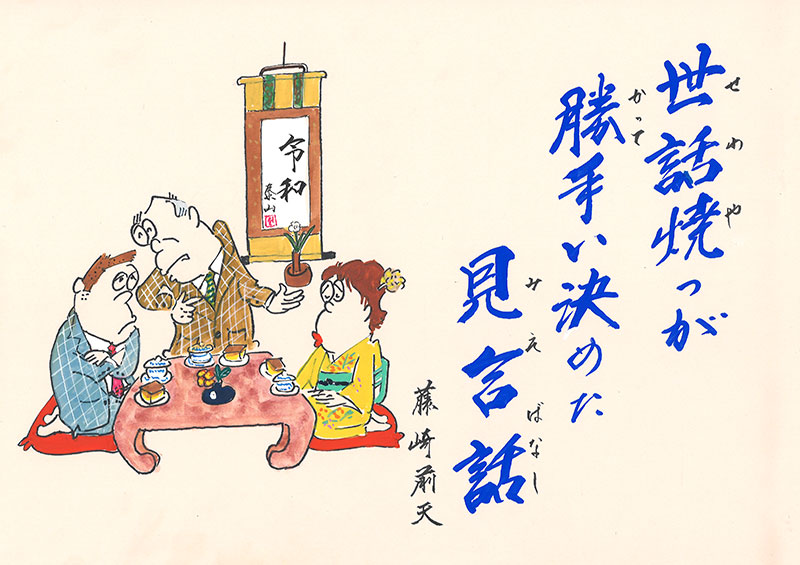 世話焼っが
せわや
勝手い決めた
かって
見合話
みえばなし
藤崎前天
令和
泰山